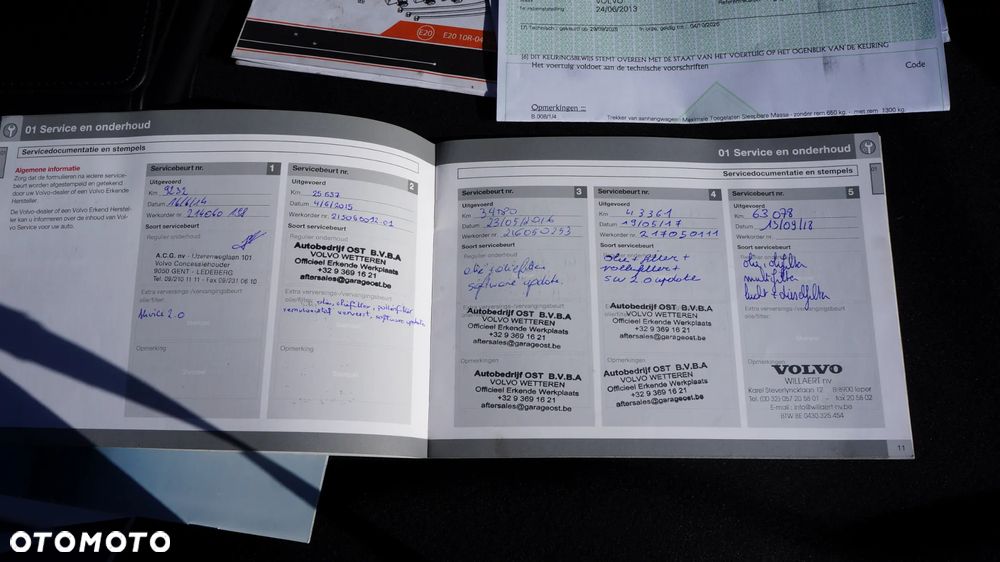 E20
E20 10R-04
VOLVO
24/06/2013
[6] DIT KEURINGSBEWIJS STEMT OVEREEN MET DE STAAT VAN HET VOERTUIG OP HET OGENBLIK VAN DE KEURING
Het voertuig voldoet aan de technische voorschriften
Code
Opmerkingen :::
B.008/1/4
Trekker van aanhangwagen: Maximale Toegelaten Sleepbare Massa - zonder rem 650 kg. - met rem 1300 kg.
01 Service en onderhoud
Servicedocumentatie en stempels
Algemene informatie
Zorg dat de formulieren na iedere service-
beurt worden afgestempeld en getekend
door uw Volvo-dealer of een Volvo Erkende
Hersteller.
De Volvo-dealer of een Volvo Erkend Herstel-
ler kan u informeren over de inhoud van Vol-
vo Service voor uw auto.
Servicebeurt nr. 1
Uitgevoerd
Km 9232
Datum 16/6/14
Werkorder nr. 214060 158
Soort servicebeurt
Regulier onderhoud
A.C.G. nv - IJzerenweglaan 101
Volvo Concessiehouder
9050 GENT - LEDEBERG
Tel. 09/210 11 11 - Fax 09/231 06 10
Extra verversings-/vervangingsbeurt
olie/filter:
Opmerking
Servicebeurt nr. 2
Uitgevoerd
Km 25657
Datum 4/6/2015
Werkorder nr. 215096012-01
Soort servicebeurt
Autobedrijf OST B.V.B.A
VOLVO WETTEREN
Officieel Erkende Werkplaats
+32 9 369 16 21
aftersales@garageost.be
Extra verversings-/vervangingsbeurt
olie, oliefilter, pollenfilter
remvloeistof ververst, software update
Opmerking
01 Service en onderhoud
Servicedocumentatie en stempels
01
Servicebeurt nr. 3
Uitgevoerd
Km 34780
Datum 23/05/2016
Werkorder nr. 216050253
Soort servicebeurt
Regulier onderhoud
olie + oliefilter
software update
Autobedrijf OST B.V.B.A
VOLVO WETTEREN
Officieel Erkende Werkplaats
+32 9 369 16 21
aftersales@garageost.be
Opmerkingen
Autobedrijf OST B.V.B.A
VOLVO WETTEREN
Officieel Erkende Werkplaats
+32 9 369 16 21
aftersales@garageost.be
Servicebeurt nr. 4
Uitgevoerd
Km 43361
Datum 19/05/17
Werkorder nr. 217050111
Soort servicebeurt
olie + filter +
pollenfilter +
sw 2.0 update
Autobedrijf OST B.V.B.A
VOLVO WETTEREN
Officieel Erkende Werkplaats
+32 9 369 16 21
aftersales@garageost.be
Opmerkingen
Autobedrijf OST B.V.B.A
VOLVO WETTEREN
Officieel Erkende Werkplaats
+32 9 369 16 21
aftersales@garageost.be
Servicebeurt nr. 5
Uitgevoerd
Km 63078
Datum 13/09/18
Werkorder nr.
Soort servicebeurt
Regulier onderhoud
olie, oliefilter
multifilter
lucht + dieselfilter
Extra verversings-/vervangingsbeurt
olie/filter:
Opmerkingen
VOLVO
WILLAERT nv
Karel Steverlyncklaan 12 B-8900 Ieper
Tel. (00 32) 057 20 58 01 - fax 20 58 02
E-mail: info@willaert-nv.be
BTW BE 0430 325 454
11
OTOMOTO